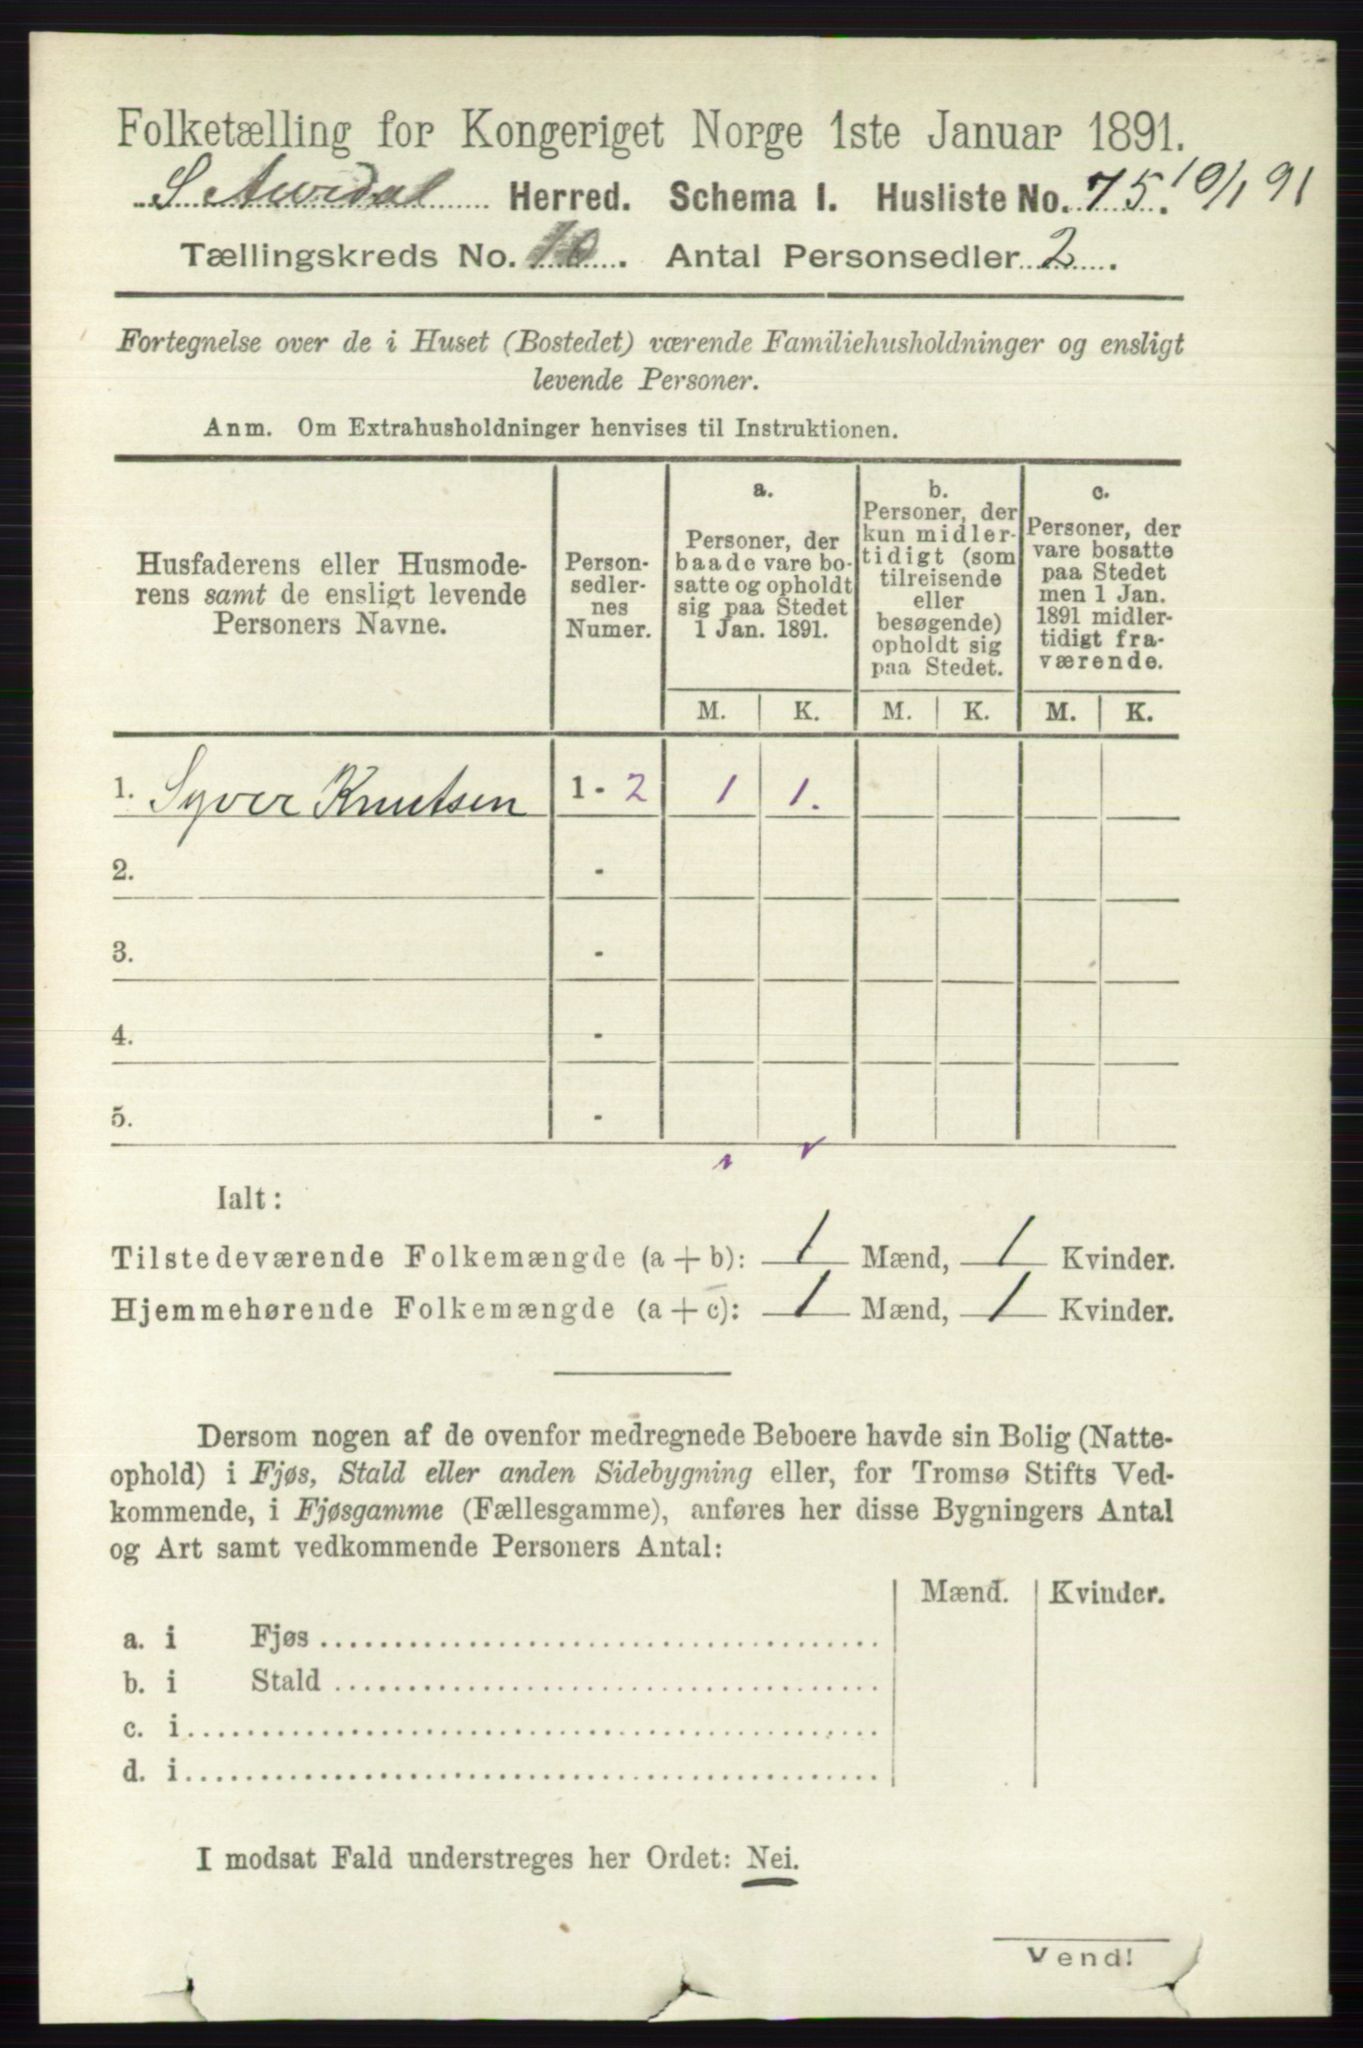 Folketælling for Kongeriget Norge 1ste Januar 1891.
S Aurdal Herred. Schema I. Husliste No. 75. 10/1 91
Tællingskreds No. 10. Antal Personsedler 2.
Fortegnelse over de i Huset (Bostedet) værende Familiehusholdninger og ensligt
levende Personer.
Anm. Om Extrahusholdninger henvises til Instruktionen.
Husfaderens eller Husmode-
rens samt de ensligt levende
Personers Navne.
Person-
sedler-
nes
Numer.
a.
Personer, der
baade vare bo-
satte og opholdt
sig paa Stedet
1 Jan. 1891.
b.
Personer, der
kun midler-
tidigt (som
tilreisende
eller
besøgende)
opholdt sig
paa Stedet.
c.
Personer, der
vare bosatte
paa Stedet
men 1 Jan.
1891 midler-
tidigt fra-
værende.
M. K. M. K. M. K.
1. Syver Knutsen 1 - 2 1 1.
2. -
3. -
4. -
5. -
Ialt:
Tilstedeværende Folkemængde (a + b): 1 Mænd, 1 Kvinder.
Hjemmehørende Folkemængde (a + c): 1 Mænd, 1 Kvinder.
Dersom nogen af de ovenfor medregnede Beboere havde sin Bolig (Natte-
ophold) i Fjøs, Stald eller anden Sidebygning eller, for Tromsø Stifts Ved-
kommende, i Fjøsgamme (Fællesgamme), anføres her disse Bygningers Antal
og Art samt vedkommende Personers Antal:
Mænd. Kvinder.
a. i Fjøs
b. i Stald
c. i
d. i
I modsat Fald understreges her Ordet: Nei.
Vend!